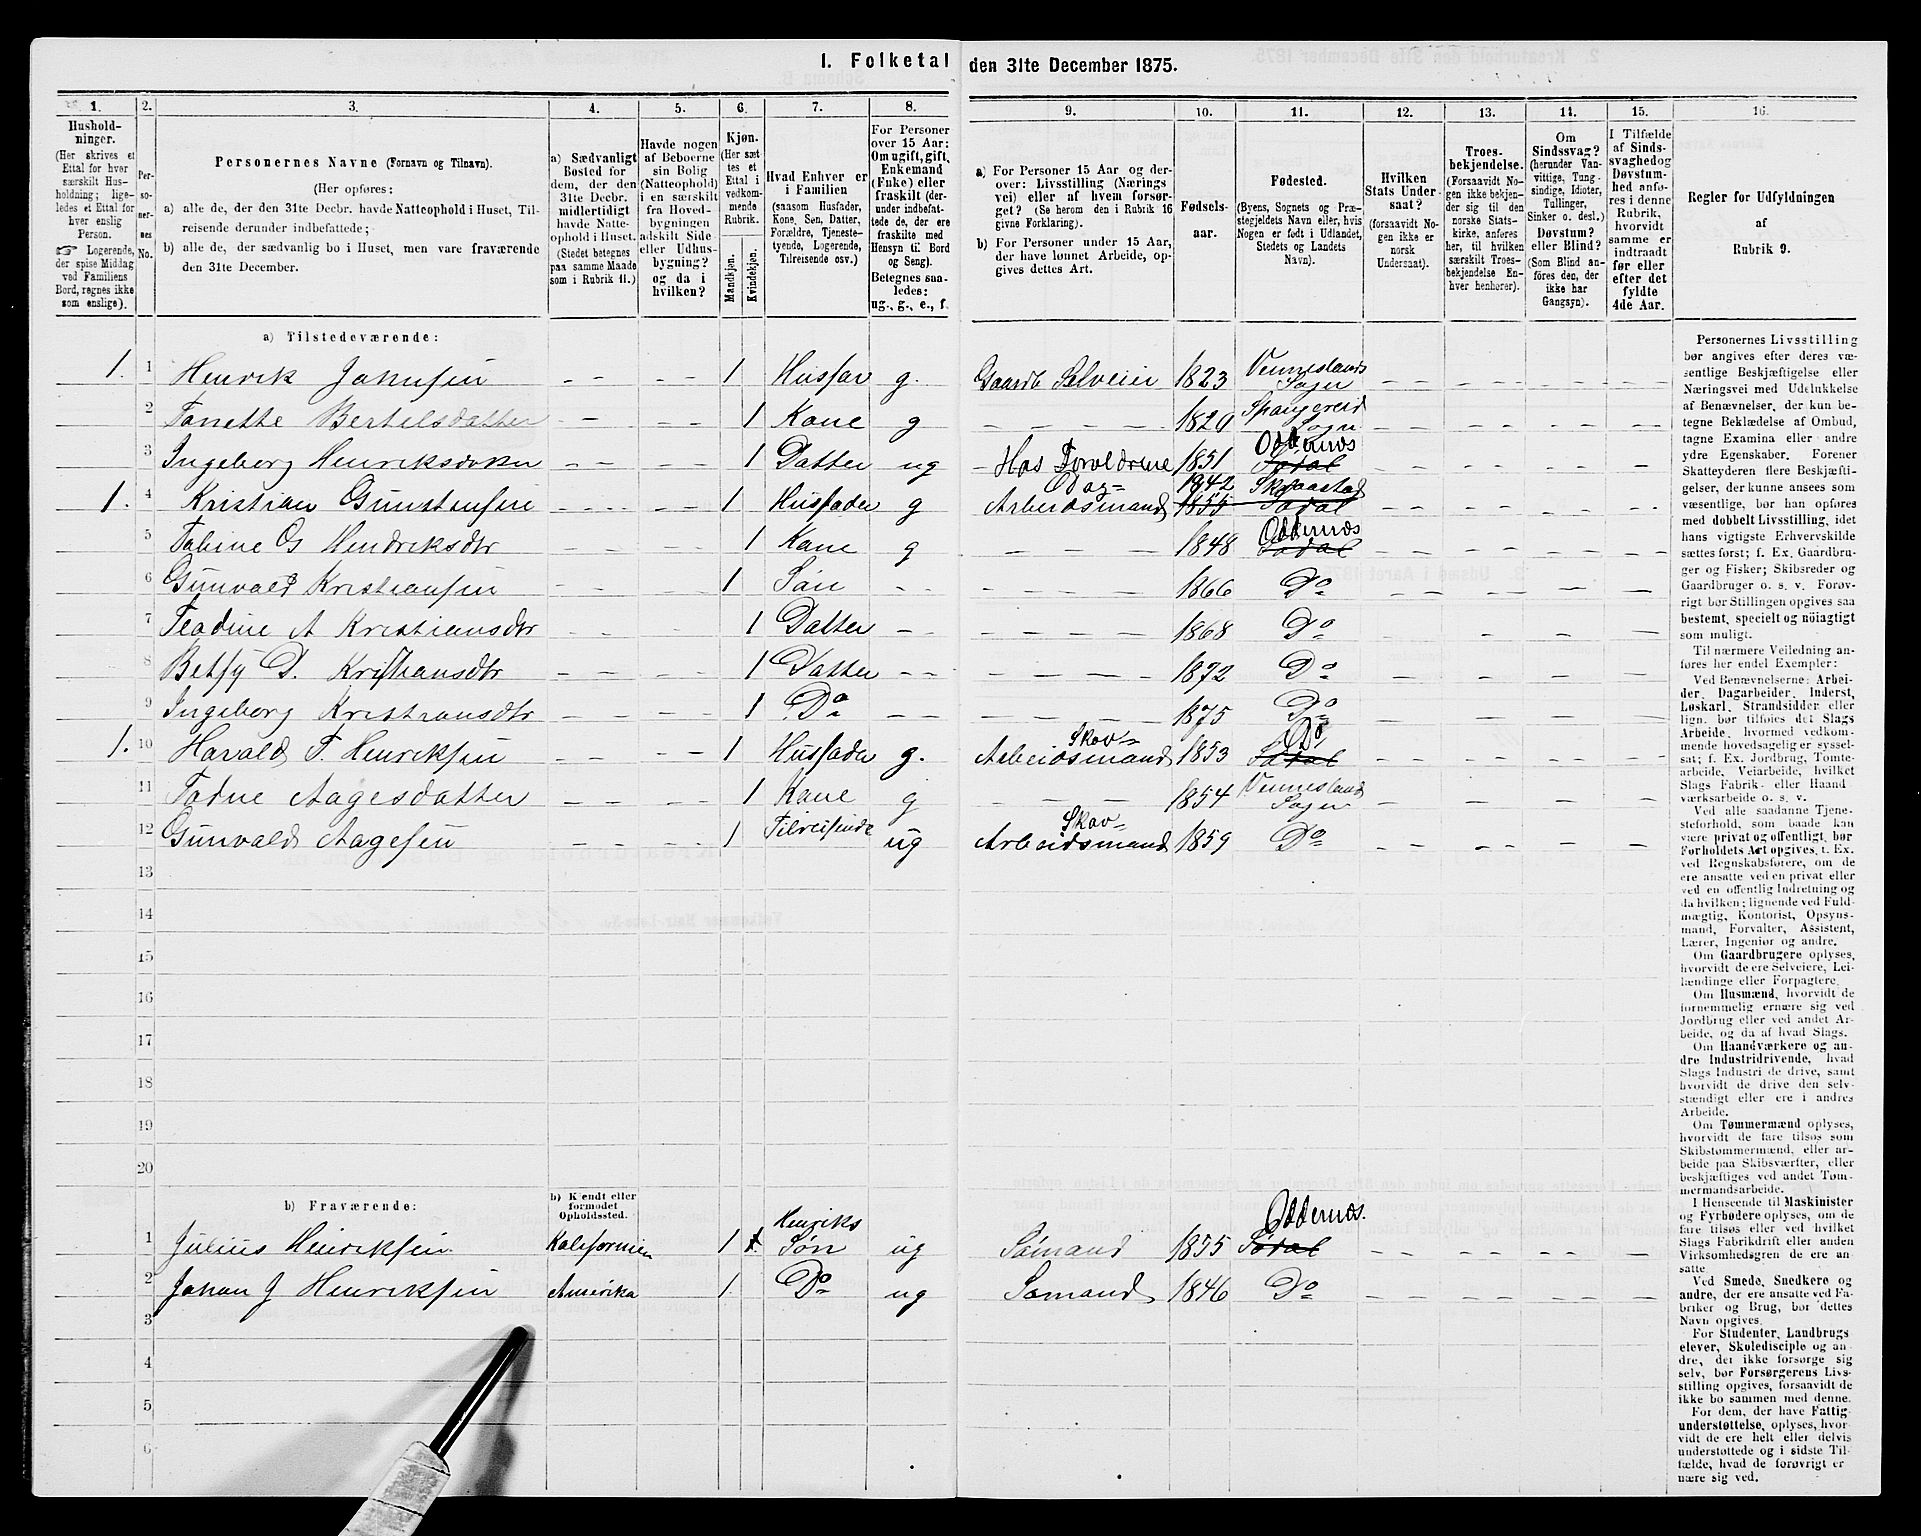 1. Folketal den 31te December 1875.
1. 2. 3. 4. 5. 6. 7. 8. 9. 10. 11. 12. 13. 14. 15. 16.
Hushold-
ninger.
(Her skrives et
Ettal for hver
særskilt Hus-
holdning; lige-
ledes et Ettal for
hver enslig
Person.
☞ Logerende,
der spise Middag
ved Familiens
Bord, regnes ikke
som enslige).
Per-
so-
ner-
nes
No.
Personernes Navne (Fornavn og Tilnavn).
(Her opføres:
a) alle de, der den 31te Decbr. havde Natteophold i Huset, Til-
reisende derunder indbefattede;
b) alle de, der sædvanlig bo i Huset, men vare fraværende
den 31te December.
a) Sædvanligt
Bosted for
dem, der den
31te Decbr.
midlertidigt
havde Natte-
ophold i Huset.
(Stedet betegnes
paa samme Maade
som i Rubrik 11.)
Havde nogen
af Beboerne
sin Bolig
(Natteophold)
i en særskilt
fra Hoved-
bygningen
adskilt Side-
eller Udhus-
bygning?
og da i
hvilken?
Kjøn.
(Her sæt-
tes et
Ettal i
vedkom-
mende
Rubrik.
Mandkjøn.
Kvindekjøn.
Hvad Enhver er
i Familien
(saasom Husfader,
Kone, Søn, Datter,
Forældre, Tjeneste-
tyende, Logerende,
Tilreisende osv.)
For Personer
over 15 Aar:
Om ugift, gift,
Enkemand
(Enke) eller
fraskilt (der-
under indbefat-
tede de, der ere
fraskilte med
Hensyn til Bord
og Seng).
Betegnes saa-
ledes:
ug., g., e., f.
a) For Personer 15 Aar og der-
over: Livsstilling (Nærings-
vei) eller af hvem forsør-
get? (Se herom den i Rubrik 16
givne Forklaring).
b) For Personer under 15 Aar,
der have lønnet Arbeide, op-
gives dettes Art.
Fødsels-
aar.
Fødested.
(Byens, Sognets og Præ-
stegjeldets Navn eller, hvis
Nogen er født i Udlandet,
Stedets og Landets
Navn).
Hvilken
Stats Under-
saat?
(forsaavidt No-
gen ikke er
norsk
Undersaat).
Troes-
bekjendelse.
(Forsaavidt No-
gen ikke bekjen-
der sig til den
norske Stats-
kirke, anføres
her, til hvilken
særskilt Troes-
bekjendelse En-
hver henhører).
Om
Sindssvag?
(herunder Van-
vittige, Tung-
sindige, Idioter,
Tullinger,
Sinker o. desl.)
Døvstum?
eller Blind?
(Som Blind an-
føres den, der
ikke har
Gangsyn).
I Tilfælde
af Sinds-
svaghed og
Døvstum-
hed anfø-
res i denne
Rubrik,
hvorvidt
samme er
indtraadt
før eller
efter det
fyldte
4de Aar.
Regler for Udfyldningen
af
Rubrik 9.
a) Tilstedeværende:
1. 1 Henrik Jahnsen – – – 1 Husfar g. Gaardb Selveier 1823 Vennesland Sogn – – – –
2 Tanette Bertelsdatter – 1 Kone g – – – – 1820 Spangereid Sogn – – – –
3 Ingeborg Henriksdatter – – – 1 Datter ug – Hos Forældrene 1851 Oddernes Todal – – – –
1. 4 Kristian Gunstensen – – – 1 Husfader g Dag= Arbeidsmand 1842 1855 Todal – – – –
5 Tobine G Hendriksdtr – – – 1 Kone g – – – – 1848 Oddernes Todal – – – –
6 Gunvald Kristiansen – – – 1 Søn – – – – – – 1866 Do – – – –
7 Teodine A Kristiansdtr – – – 1 Datter – – – – – – 1868 Do – – – –
8 Betsy D. Kristiansdtr – – – 1 Datter – – – – – – 1872 Do – – – –
9 Ingeborg Kristiansdtr – – – 1 Do – – – – – – 1875 Do – – – –
1. 10 Harald T. Henriksen – – 1 Husfader g. Skov= Arbeidsmand 1853 Do Todal – – – –
11 Todne Aagesdatter – – – 1 Kone g – – – – 1854 Vennesland Sogn – – – –
12 Gunvald Aagesen – – – 1 Tilreisende ug Skov= Arbeidsmand 1859 Do – – – –
13
14
15
16
17
18
19
20
b) Fraværende:
b) Kjendt eller
formodet
Opholdssted.
1 Julius Henriksen Kalifornien 1 Henriks Søn ug Sømand 1855 Oddernes. Todal – – – –
2 Johan J Henriksen Amerika 1 Do ug Sømand 1846 Do – – – –
3
4
5
6
Personernes Livsstilling
bør angives efter deres væ-
sentlige Beskjæftigelse eller
Næringsvei med Udelukkelse
af Benævnelser, der kun be-
tegne Beklædelse af Ombud,
tagne Examina eller andre
ydre Egenskaber. Forener
Skatteyderen flere Beskjæfti-
gelser, der kunne ansees som
væsentlige, bør han opføres
med dobbelt Livsstilling, idet
hans vigtigste Erhvervskilde
sættes først; f. Ex. Gaardbru-
ger og Fisker; Skibsreder og
Gaardbruger o. s. v. Forøv-
rigt bør Stillingen opgives saa
bestemt, specielt og nøiagtigt
som muligt.
Til nærmere Veiledning an-
føres her endel Exempler:
Ved Benævnelserne: Arbei-
der, Dagarbeider, Inderst,
Løskarl, Strandsidder eller
lign. bør tilføies det Slags
Arbeide, hvormed vedkom-
mende hovedsagelig er syssel-
sat; f. Ex. Jordbrug, Tomte-
arbeide, Veiarbeide, hvilket
Slags Fabrik- eller Haand-
værksarbeide o. s. v.
Ved alle saadanne Tjene-
steforhold, som baade kan
være privat og offentligt, bør
Forholdets Art opgives, t. Ex.
ved Regnskabsførere, om de
ere ansatte ved en privat eller
ved en offentlig Indretning og
da hvilken; lignende ved Fuld-
mægtig, Kontorist, Opsyns-
mand, Forvalter, Assistent,
Lærer, Ingeniør og andre.
Om Gaardbrugere oplyses,
hvorvidt de ere Selveiere, Lei-
lændinge eller Forpagtere.
Om Husmænd, hvorvidt de
fornemmelig ernære sig ved
Jordbrug eller ved andet Ar-
beide, og da af hvad Slags.
Om Haandværkere og an-
dre Industridrivende, hvad
Slags Industri de drive, samt
hvorvidt de drive den selv-
stændigt eller ere i andres
Arbeide.
Om Tømmermænd oplyses,
hvorvidt de fare tilsøs som
Skibstømmermænd, eller ar-
beide paa Skibsværfter, eller
beskjæftiges ved andet Tøm-
mermandsarbeide.
I Henseende til Maskinister
og Fyrbødere oplyses, om de
fare tilsøs eller ved hvilket
Slags Fabrikdrift eller anden
Virksomhedsgren de ere an-
satte.
Ved Smede, Snedkere og
andre, der ere ansatte ved Fa-
briker og Brug, bør dettes
Navn opgives.
For Studenter, Landbrugs-
elever, Skoledisciple og an-
dre, der ikke forsørge sig
selv, bør Forsørgerens Livs-
stilling opgives, forsaavidt de
ikke bo sammen med denne.
For dem, der have Fattig-
understøttelse, oplyses, hvor-
vidt de ere helt eller delvis
understøttede og i sidste Til-
fælde, hvad de forøvrigt er-
nære sig ved.